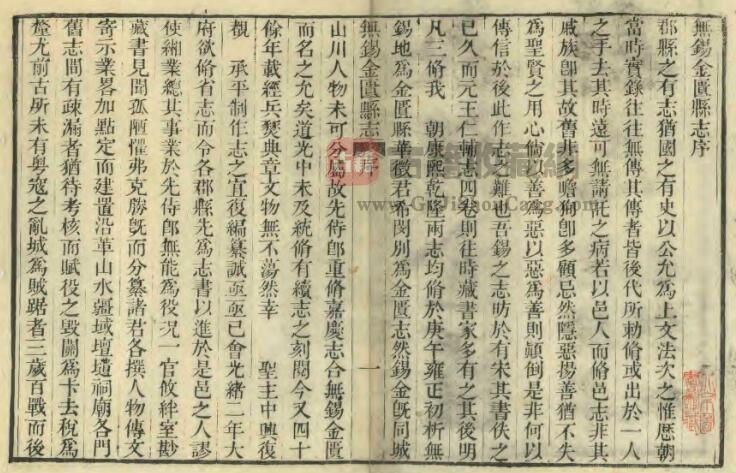 無錫金匱縣志序
郡縣之有志猶國之有史以公允為上文法次之惟歷朝
當時實錄往往無傳其傳者皆後代所勅脩或出於一人
之手去其時遠可無請託之病若以邑人而脩邑志非其
戚族卽其故舊非多瞻狥卽多顧忌然隱惡揚善猶不失
為聖賢之用心倘以善為惡以惡為善則顛倒是非何以
傳信於後此作志之難也吾錫之志昉於有宋其書佚之
已久而元王仁輔志四卷則往時藏書家多有之其後明
凡三脩我　朝康熙乾隆兩志均脩於庚午雍正初析無
錫地為金匱縣華徵君希閔別為金匱志然錫金旣同城
無錫金匱縣志　序　一
山川人物未可分屬故先侍郎重脩嘉慶志合無錫金匱
而名之允矣道光中未及統脩有續志之刻閱今又四十
餘年載經兵燹典章文物無不蕩然幸　聖主中興復
覩　承平制作志之宜復編纂誠亟亟已會光緒二年大
府欲脩省志而令各郡縣先為志書以進於是邑之人謬
使緗業總其事業於先侍郎無能為役況一官攸絆室尠
藏書見聞孤陋懼弗克勝旣而分纂諸君各撰人物傳文
寄示業畧加點定而建置沿革山水疆域壇壝祠廟各門
舊志間有疎漏者猶待考核而賦役之毀關為卡去稅為
釐尤前古所未有粵寇之亂城為賊踞者三歲百戰而後
古籍收藏網
www.GujiShouCang.com